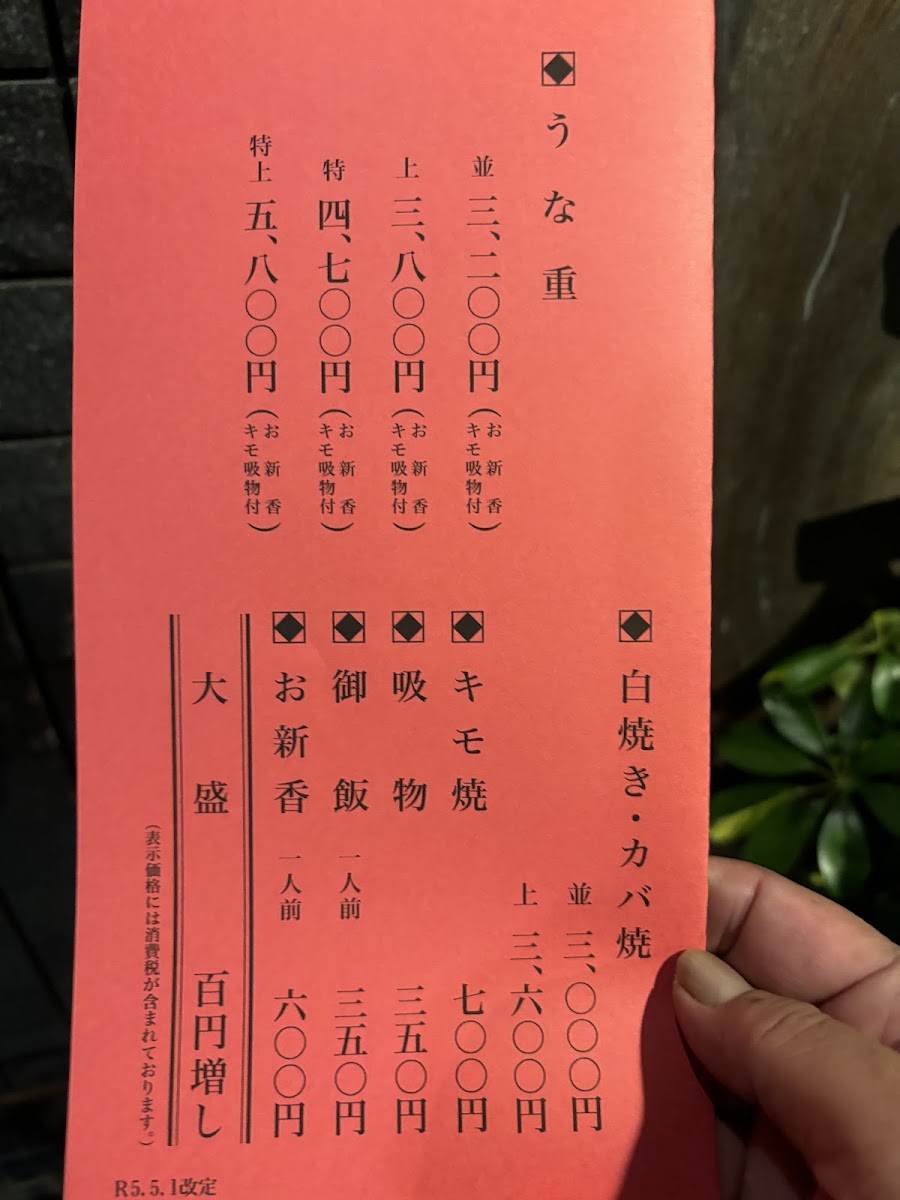 ◆うな重
並 三、二〇〇円(お新香 キモ吸物付)
上 三、八〇〇円(お新香 キモ吸物付)
特 四、七〇〇円(お新香 キモ吸物付)
特上 五、八〇〇円(お新香 キモ吸物付)
◆白焼き・カバ焼
並 三、〇〇〇円
上 三、六〇〇円
◆キモ焼 七〇〇円
◆吸物 三五〇円
◆御飯 一人前 三五〇円
◆お新香 一人前 六〇〇円
大盛 百円増し
(表示価格には消費税が含まれております。)
R5.5.1改定